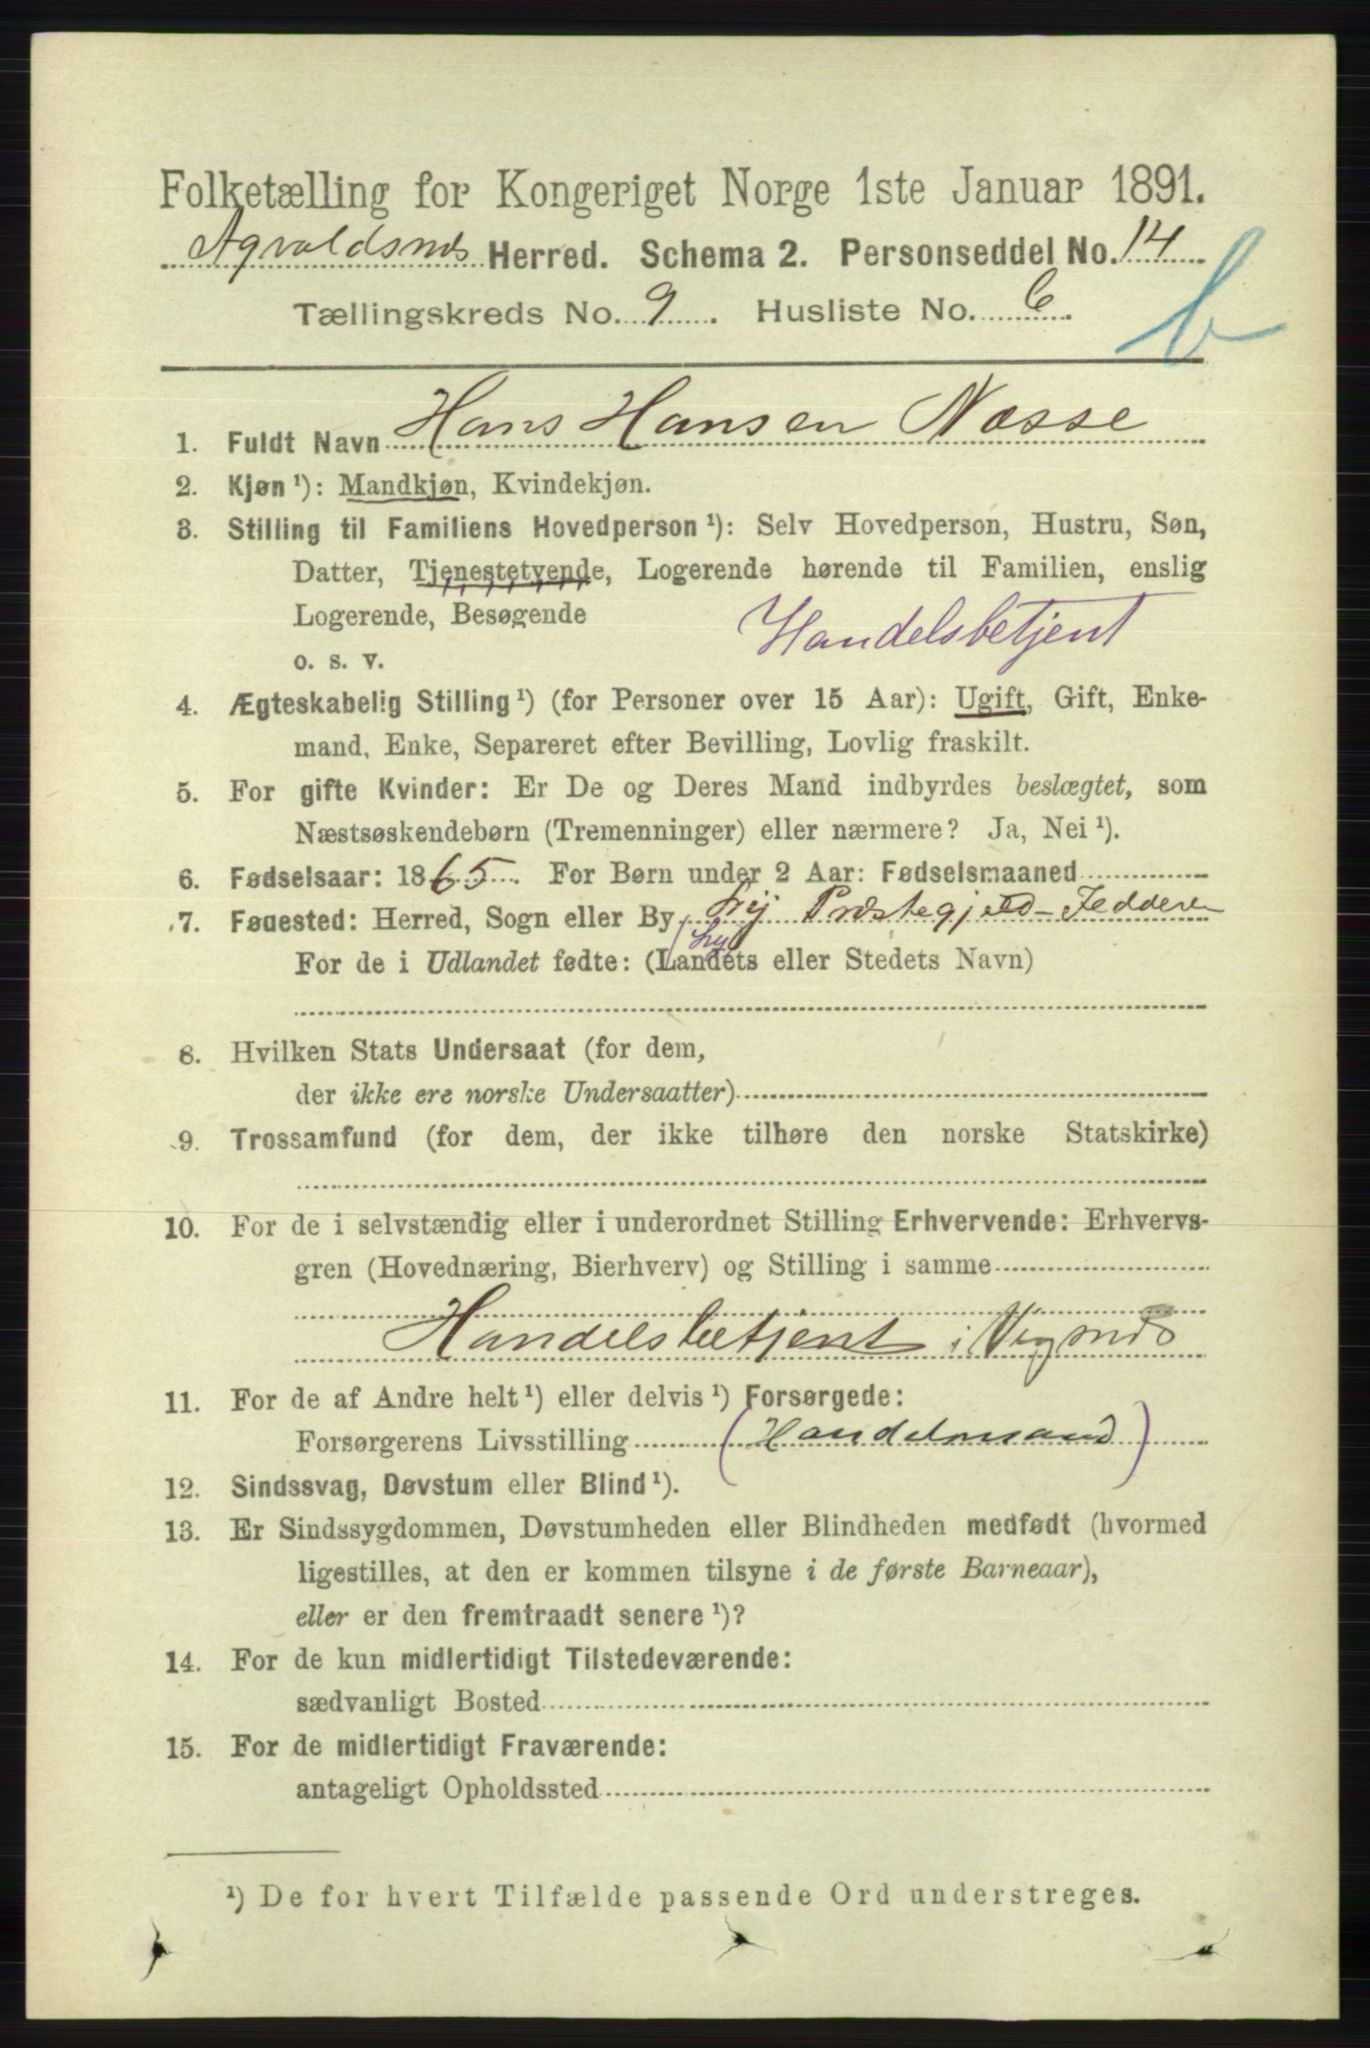 Folketælling for Kongeriget Norge 1ste Januar 1891.
Agvaldsnæs Herred. Schema 2. Personseddel No. 14
b
Tællingskreds No. 9. Husliste No. 6.
1. Fuldt Navn Hans Hansen Næsse
2. Kjøn¹): Mandkjøn, Kvindekjøn.
3. Stilling til Familiens Hovedperson¹): Selv Hovedperson, Hustru, Søn,
Datter, Tjenestetyende, Logerende hørende til Familien, enslig
Logerende, Besøgende
Handelsbetjent
o. s. v.
4. Ægteskabelig Stilling¹) (for Personer over 15 Aar): Ugift, Gift, Enke-
mand, Enke, Separeret efter Bevilling, Lovlig fraskilt.
5. For gifte Kvinder: Er De og Deres Mand indbyrdes beslægtet, som
Næstsøskendebørn (Tremenninger) eller nærmere? Ja, Nei¹).
6. Fødselsaar: 1865. For Børn under 2 Aar: Fødselsmaaned
7. Fødested: Herred, Sogn eller By Præstegjeld Jedderen
For de i Udlandet fødte: (Landets eller Stedets Navn)
8. Hvilken Stats Undersaat (for dem,
der ikke ere norske Undersaatter)
9. Trossamfund (for dem, der ikke tilhøre den norske Statskirke)
10. For de i selvstændig eller i underordnet Stilling Erhvervende: Erhvervs-
gren (Hovednæring, Bierhverv) og Stilling i samme
Handelsbetjent i Vigsnæs
11. For de af Andre helt¹) eller delvis¹) Forsørgede:
Forsørgerens Livsstilling (Handelsmand)
12. Sindssvag, Døvstum eller Blind¹).
13. Er Sindssygdommen, Døvstumheden eller Blindheden medfødt (hvormed
ligestilles, at den er kommen tilsyne i de første Barneaar),
eller er den fremtraadt senere¹)?
14. For de kun midlertidigt Tilstedeværende:
sædvanligt Bosted
15. For de midlertidigt Fraværende:
antageligt Opholdssted
¹) De for hvert Tilfælde passende Ord understreges.